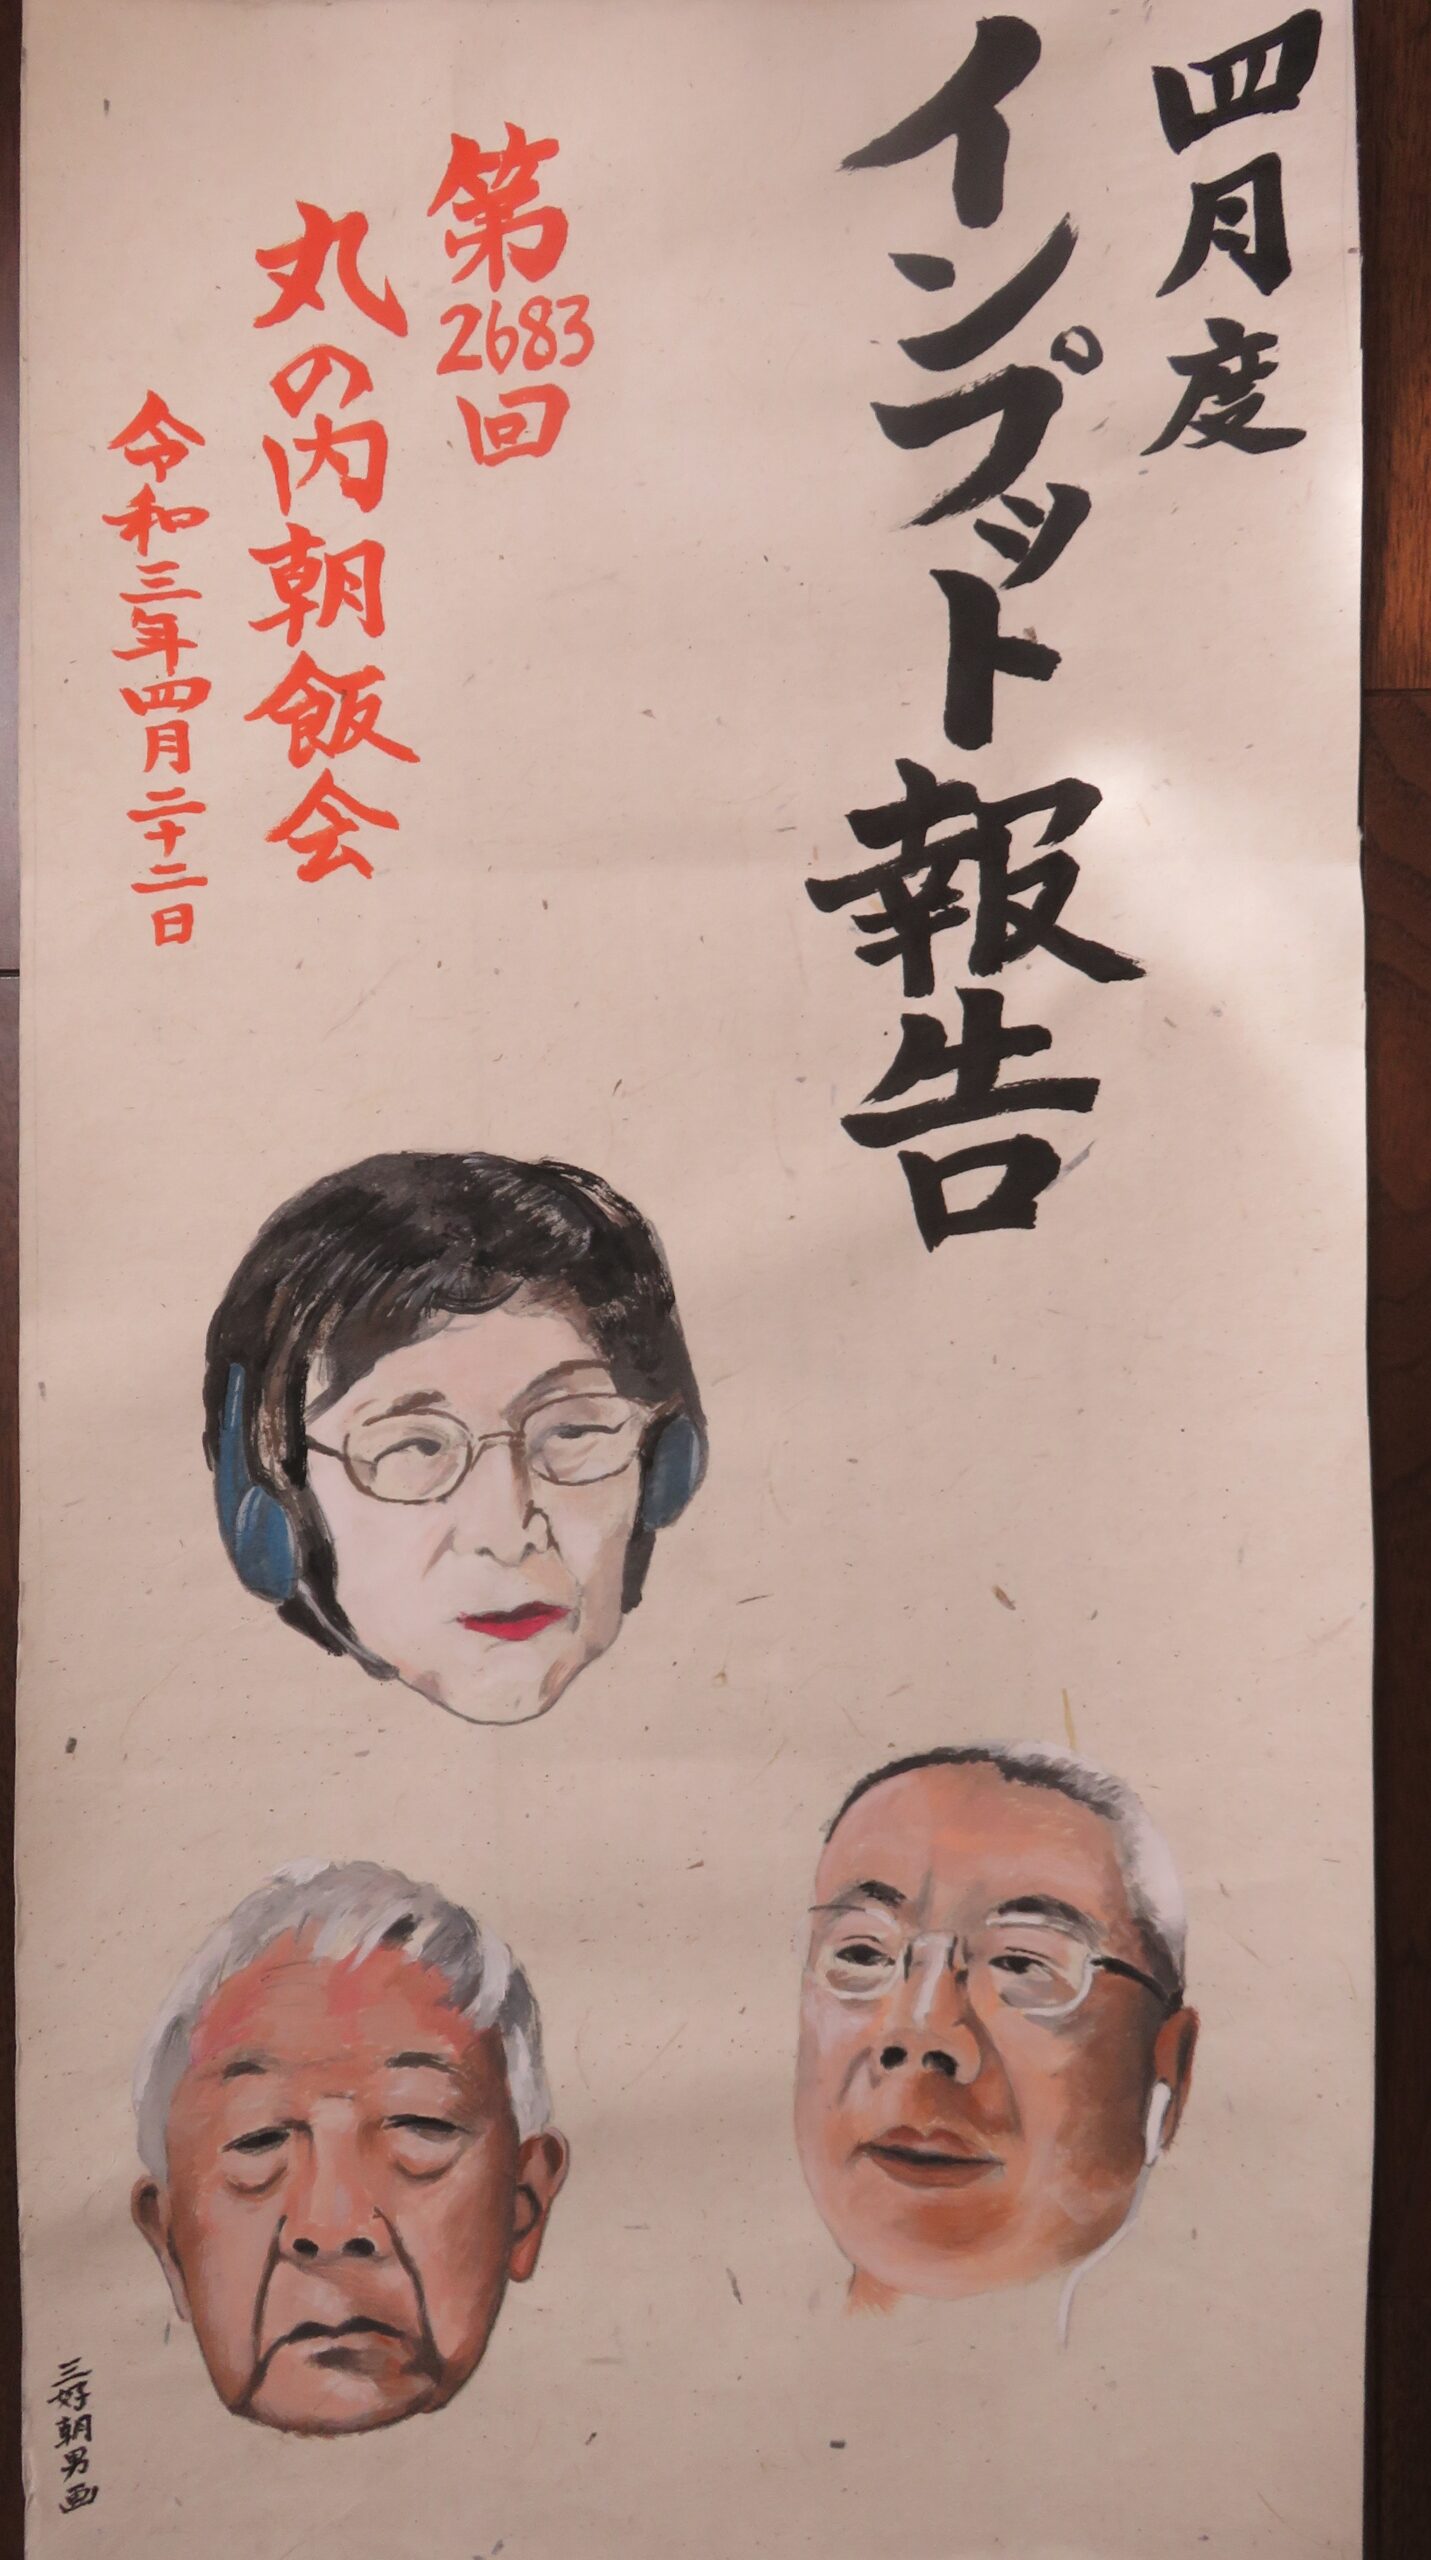 四月度
インプット報告
第2683回
丸の内朝飯会
令和三年四月二十二日
三好朝男画